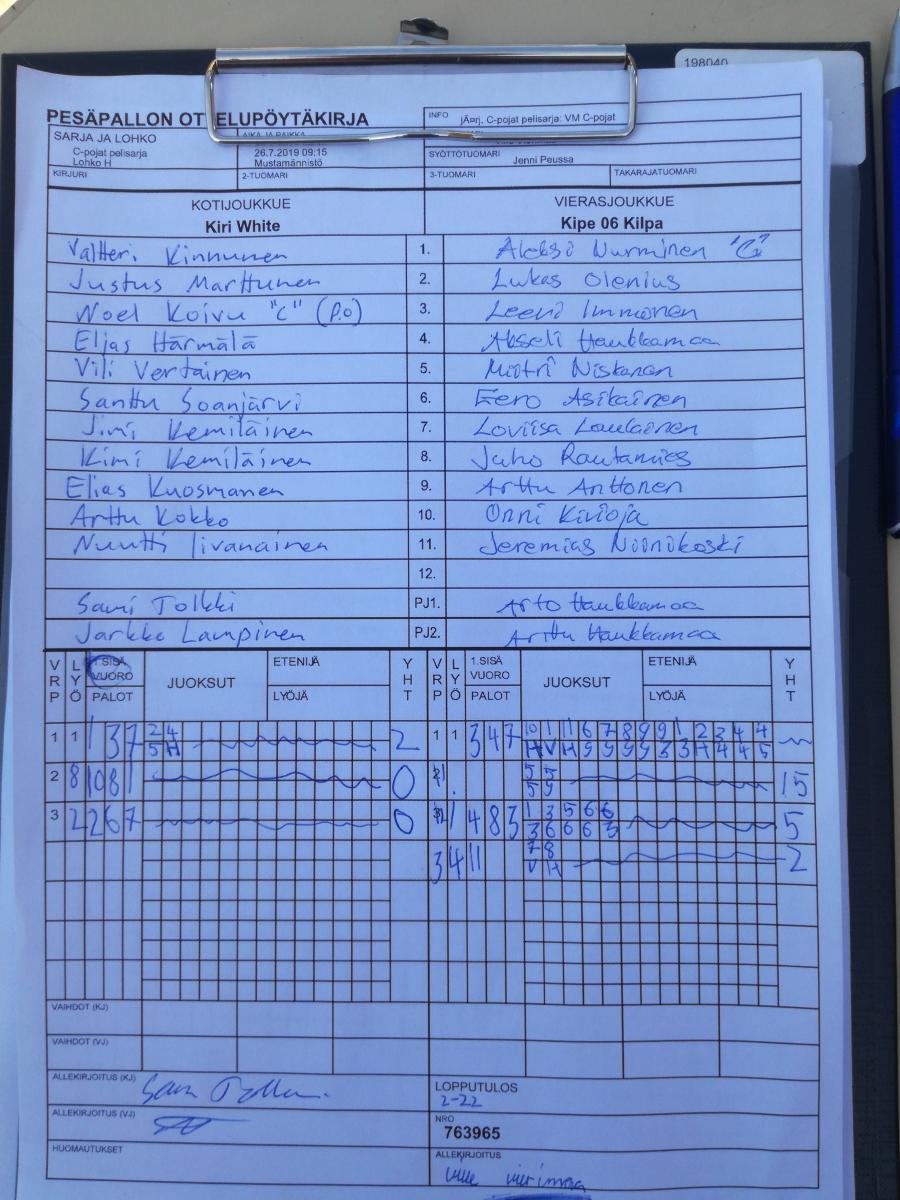 198040
PESÄPALLON OT ELUPÖYTÄKIRJA
INFO jÃ¤rj, C-pojat pelisarja: VM C-pojat
SARJA JA LOHKO
C-pojat pelisarja
Lohko H
AIKA JA PAIKKA
26.7.2019 09:15
Mustamännistö
SYÖTTÖTUOMARI Jenni Peussa
KIRJURI 2-TUOMARI 3-TUOMARI TAKARAJATUOMARI
KOTIJOUKKUE VIERASJOUKKUE
Kiri White Kipe 06 Kilpa
Valtteri Kinnunen 1. Aleksi Nurminen "C"
Justus Marttunen 2. Lukas Olenius
Noel Koivu "C" (P.O) 3. Leevi Immonen
Elias Härmälä 4. Akseli Haukkamaa
Vili Vertainen 5. Miitri Niskanen
Santtu Soanjärvi 6. Eero Asikainen
Jimi Kemiläinen 7. Loviisa Laulainen
Kimi Kemiläinen 8. Juho Rautamies
Elias Kuosmanen 9. Arttu Anttonen
Arttu Kokko 10. Onni Kivioja
Nuutti Iivanainen 11. Jeremias Niinikoski
12.
Sami Tolkki PJ1. Arto Haukkamaa
Jarkko Lampinen PJ2. Arttu Haukkamaa
VRP LYÖ 1.SISÄ VUORO PALOT JUOKSUT ETENIJÄ LYÖJÄ YHT VRP LYÖ 1.SISÄ VUORO PALOT JUOKSUT ETENIJÄ LYÖJÄ YHT
1 1 1 3 7 2 4 2 1 1 3 4 7 10 1 11 6 7 8 9 9 1 2 3 4 4
5 H H V H 9 9 9 9 3 3 H 4 4 5
2 8 10 8 1 0 5 5 15
5 9
3 2 2 6 7 0 1 4 8 3 1 3 5 6 6 5
3 6 6 6 3
3 4 11 7 8 2
V H
VAIHDOT (KJ)
VAIHDOT (VJ)
ALLEKIRJOITUS (KJ)
LOPPUTULOS
2-22
ALLEKIRJOITUS (VJ)
NRO
763965
HUOMAUTUKSET
ALLEKIRJOITUS